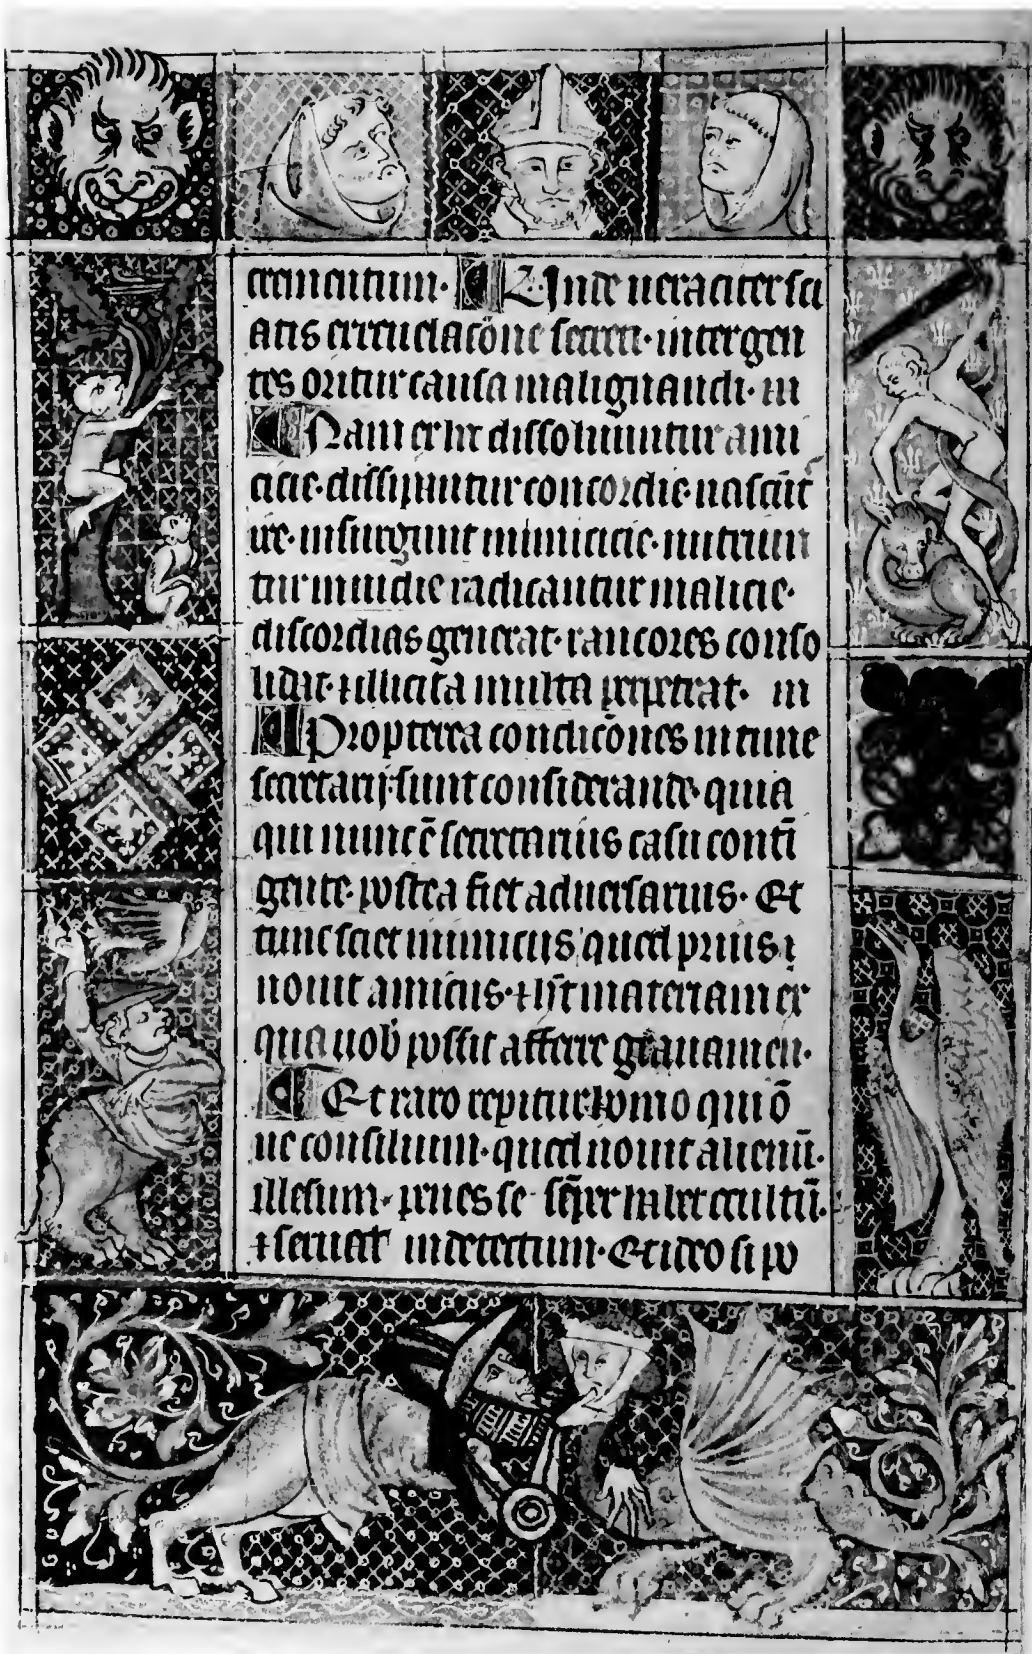 crementum. Unde veraciter sci
atis ex reuelacōne secreti. inter gen
tes oritur causa malignandi. in
Nam ex hr dissoluuntur ami
cicie. dissipantur concordie. nascūt
ire. insurgunt inimicicie. nutriun
tur inuidie radicantur malicie.
discordias generat. rancores conso
lidat. ⁊ illicita multa perpetrat. in
Propterea condicōnes in tune
secretarij. sunt considerande. quia
qui nunc ē secretarius casu conti
gente. postea fiet aduersarius. Et
tunc sciet inimicus quod prius
nouit amicus. ⁊ materiam ex
qua uob possit afferre grauamen.
Et raro repitur homo qui ō
ne consilium. quod nouit alienū.
illesum. penes se. semper habet occultū.
⁊ seruet indetectum. Et ideo si po